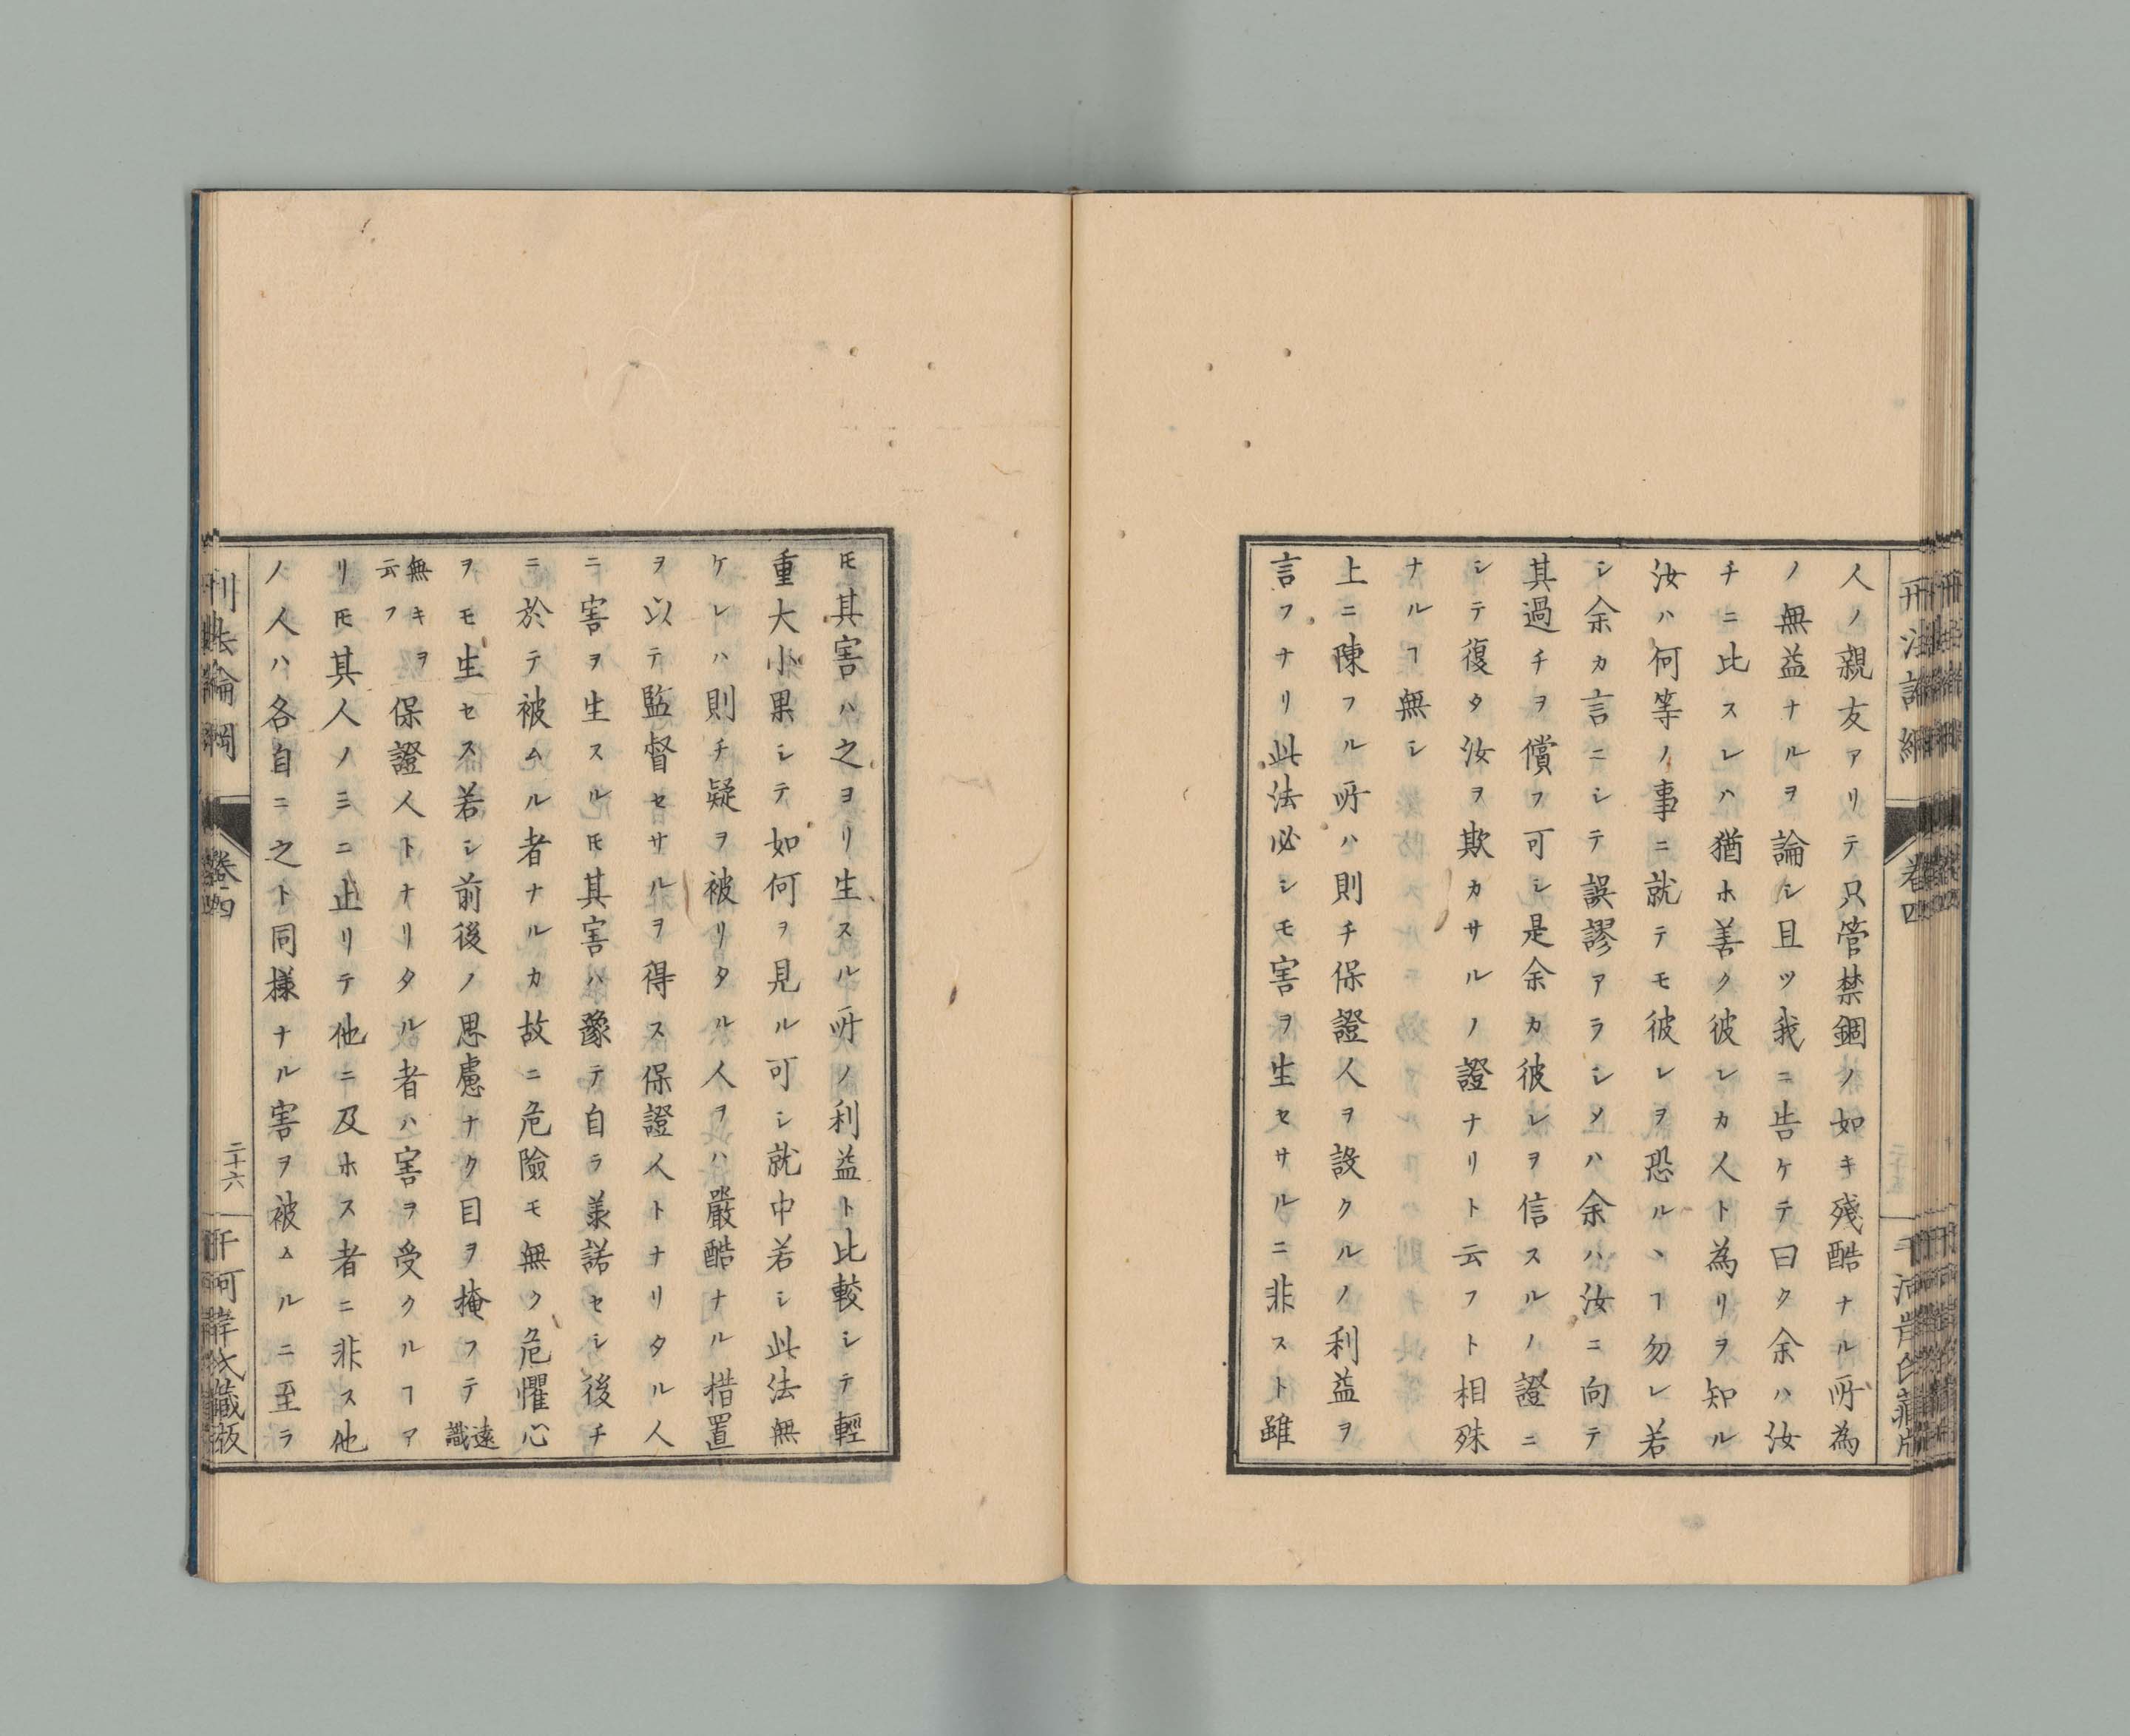 人ノ親友アリテ只管禁錮ノ如キ殘酷ナル所為
ノ無益ナルヲ論シ且ツ我ニ告ケテ曰ク余ハ汝
チニ比スレハ猶ホ善ク彼レカ人ト為リヲ知ル
汝ハ何等ノ事ニ就テモ彼レヲ恐ルヽヿ勿レ若
シ余カ言ニシテ誤謬アラシメハ余ハ汝ニ向テ
其過チヲ償フ可シ是余カ彼レヲ信スルノ證ニ
シテ復タ汝ヲ欺カサルノ證ナリト云フト相殊
ナルヿ無シ
上ニ陳フル所ハ則チ保證人ヲ設クルノ利益ヲ
言フナリ此法必シモ害ヲ生セサルニ非スト雖
𪜈其害ハ之ヨリ生スル所ノ利益ト比較シテ輕
重大小果シテ如何ヲ見ル可シ就中若シ此法無
ケレハ則チ疑ヲ被リタル人ヲハ嚴酷ナル措置
ヲ以テ監督セサルヲ得ス保證人トナリタル人
ニ害ヲ生スル𪜈其害ハ豫テ自ラ羕諾セシ後チ
ニ於テ被ムル者ナルカ故ニ危險モ無ク危懼心
ヲモ生セス若シ前後ノ思慮ナク目ヲ掩フテ遠識
無キヲ云フ保證人トナリタル者ハ害ヲ受クルヿア
リ𪜈其人ノミニ止リテ他ニ及ホス者ニ非ス他
ノ人ハ各自ニ之ト同様ナル害ヲ被ムルニ至ラ
卷四
二十六